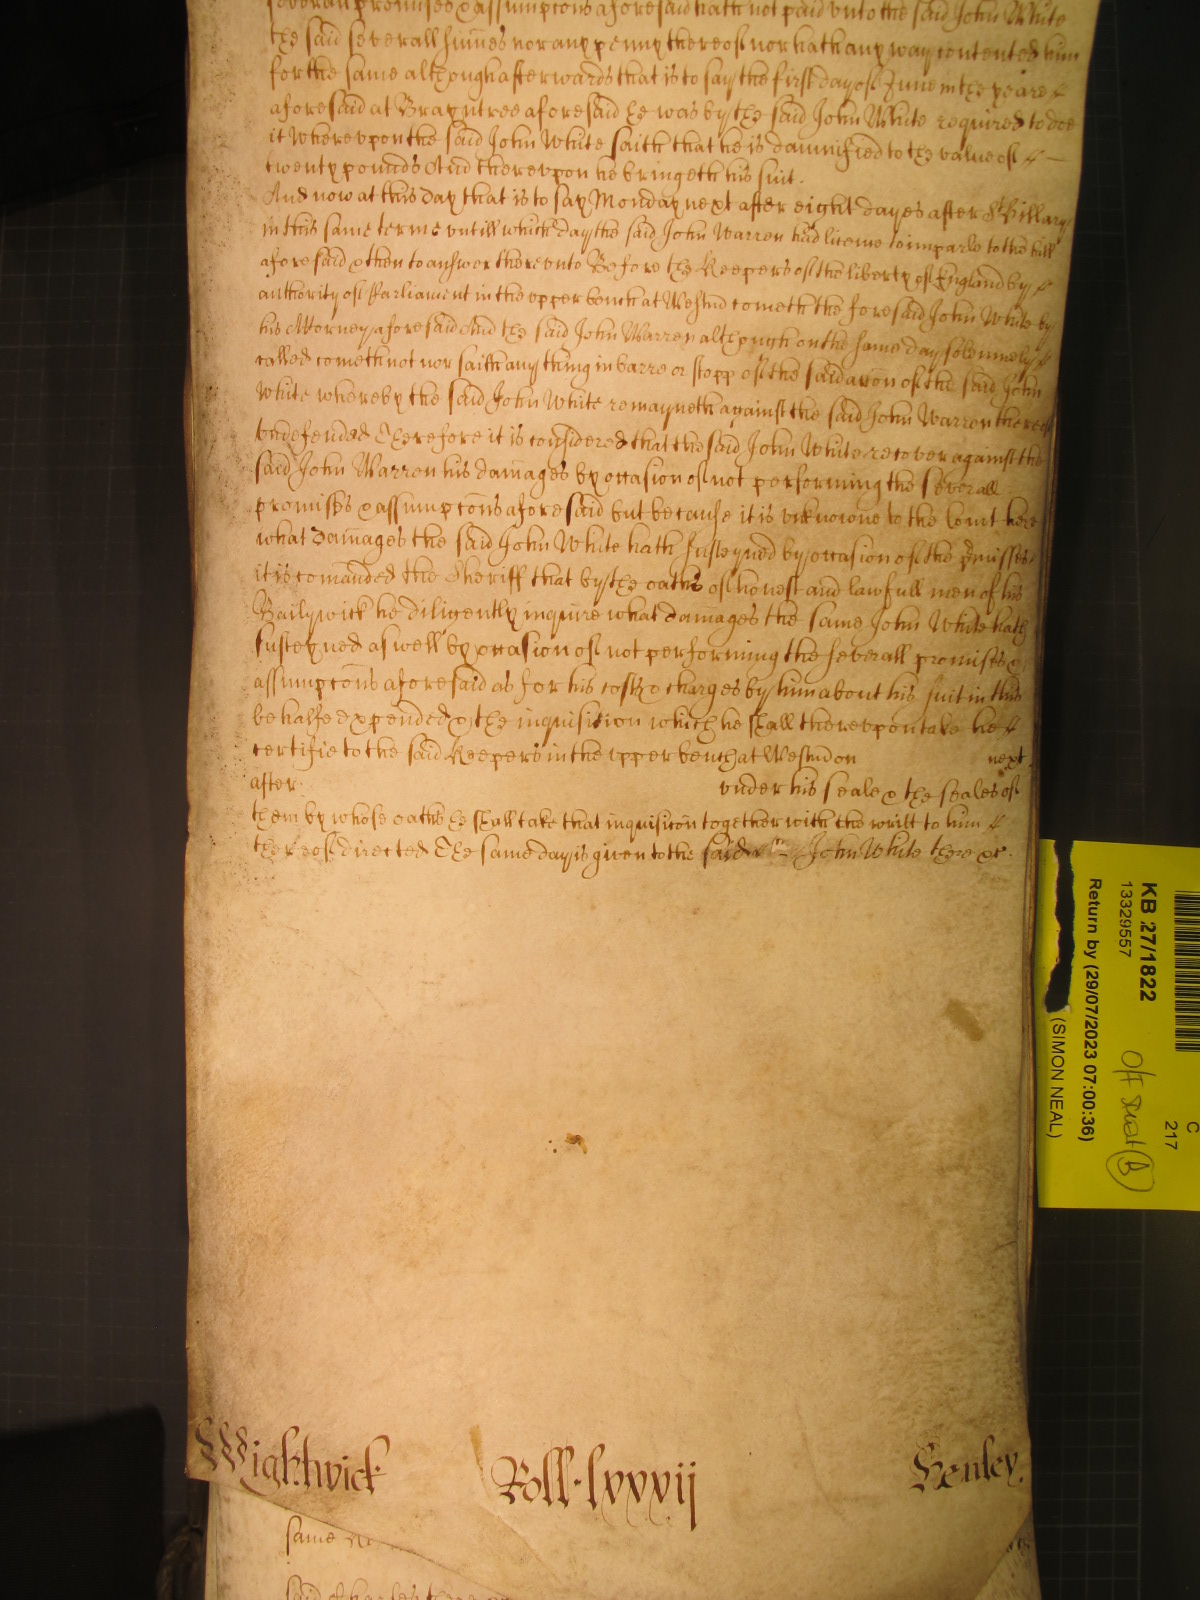 severall promisses & assumpcons aforesaid hath not paid vnto the said John White
the said severall sumes nor any penny thereof nor hath any way contented him
for the same although afterwards that is to say the first day of June in the yeare
aforesaid at Brayntree aforesaid he was by the said John White required to doe
it wherevpon the said John White saith that he is damnified to the value of
twenty pounds And therevpon he bringeth his suit.
And now at this day that is to say Monday next after eight dayes after St Hillary
in this same terme vntill which day the said John Warren had licence to imparle to the bill
aforesaid & then to answer therevnto Before the Keepers of the liberty of England by
authority of Parliament in the vpper bench at Westm cometh the foresaid John White by
his Attorney aforesaid And the said John Warren although on the same day solemnely
called cometh not nor saith any thing in barre or stopp of the said accon of the said John
White whereby the said John White remayneth against the said John Warren thereof
vndefended Therefore it is considered that the said John White recover against the
said John Warren his damages by occasion of not performing the severall
promisses & assumpcons aforesaid but because it is vnknowne to the Court here
what damages the said John White hath susteyned by occasion of the pmisses
it is comanded the Sheriff that by the oaths of honest and lawfull men of his
Bailywick he diligently inquire what damages the same John White hath
susteyned as well by occasion of not performing the severall promisses &
assumpcons aforesaid as for his costs & charges by him about his suit in this
behalfe expended & the inquisition which he shall therevpon take he
certifie to the said Keepers in the vpper bench at Westm on next
after vnder his seale & the seales of
them by whose oathes he shall take that inquisicon together with the writt to him
thereof directed The same day is given to the said John White there &c.
Wightwick Roll. lxxxij Henley.
same
said Charles there
KB 27/1822
13329557
Return by (29/07/2023 07:00:36)
(SIMON NEAL)
C
217